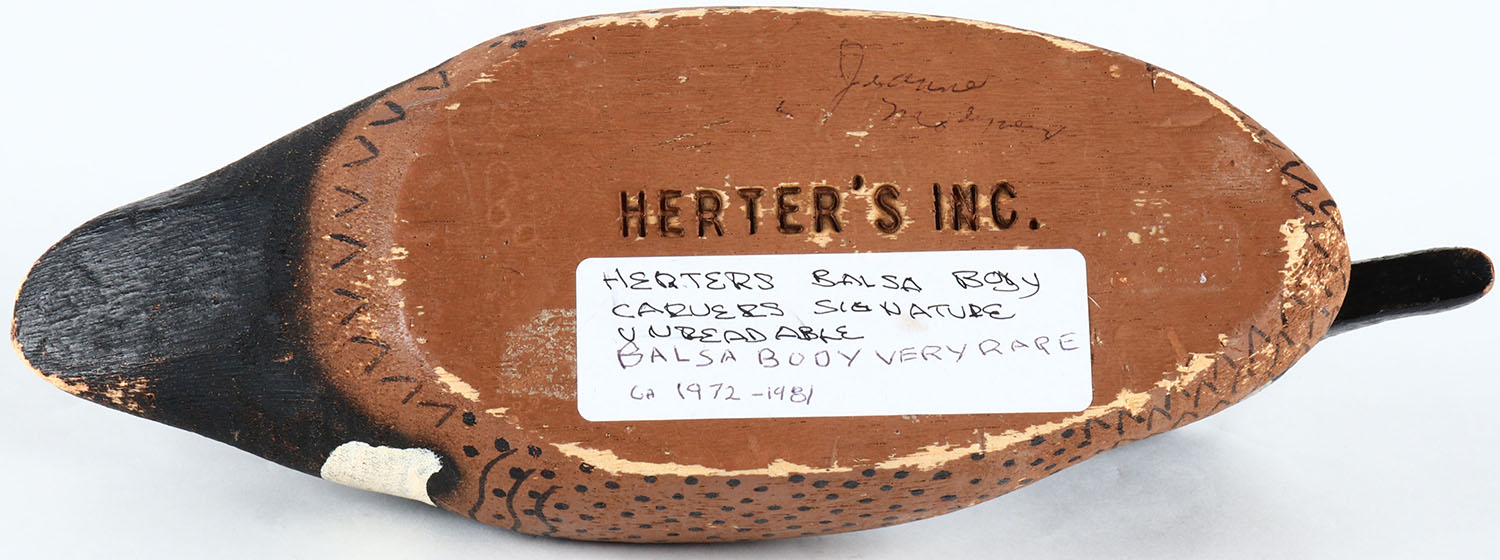 Jeanne
HERTER'S INC.
HERTERS BALSA BODY
CARVERS SIGNATURE
UNREADABLE
BALSA BODY VERY RARE
CA 1972-1981